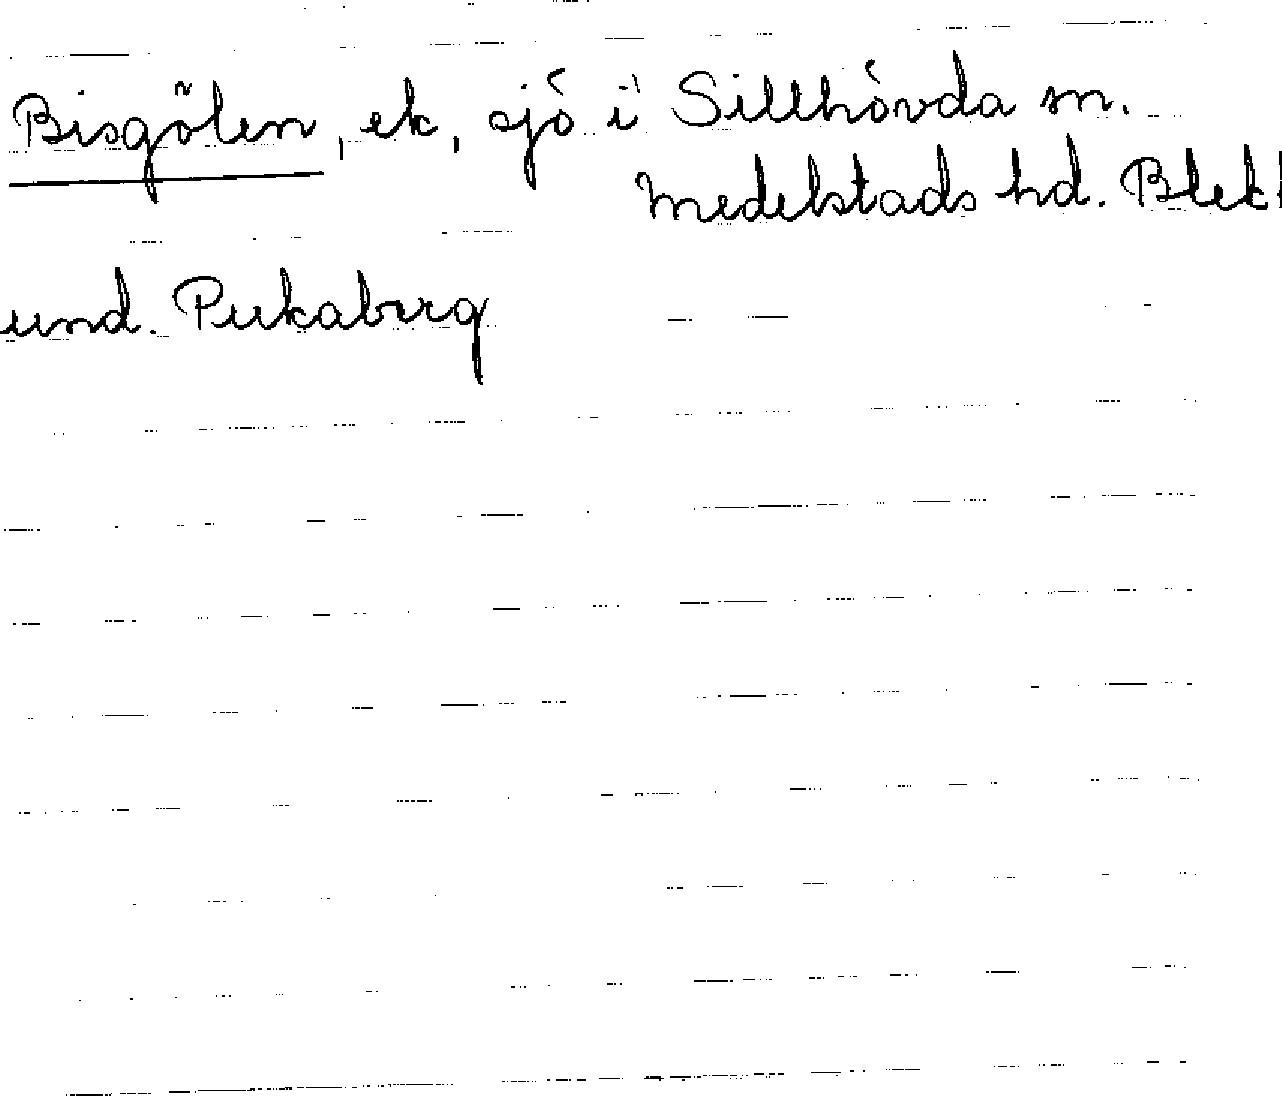 Bisgölen, ek, sjö i Sillhövda sn.
Medelstads hd. Blek
und. Pukaberg